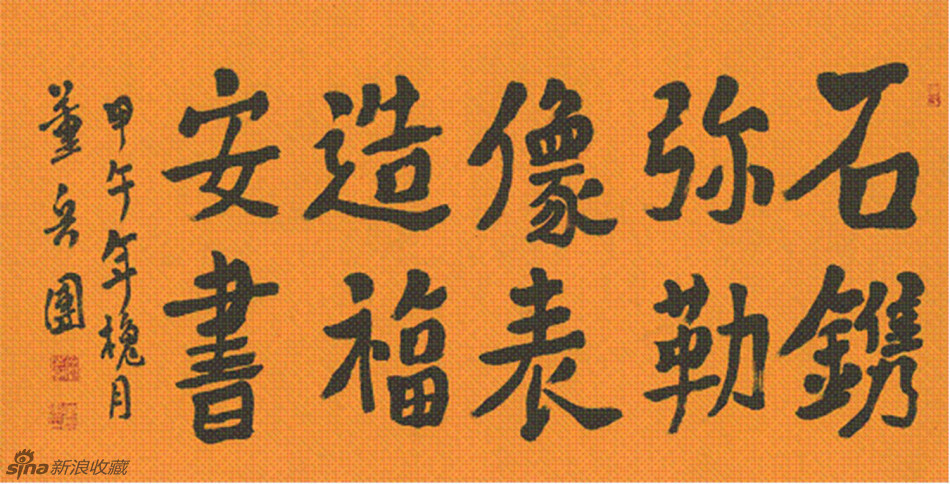 石鎸
弥勒
像表
造福
安書
甲午年槐月
董兵團
sina新浪收藏